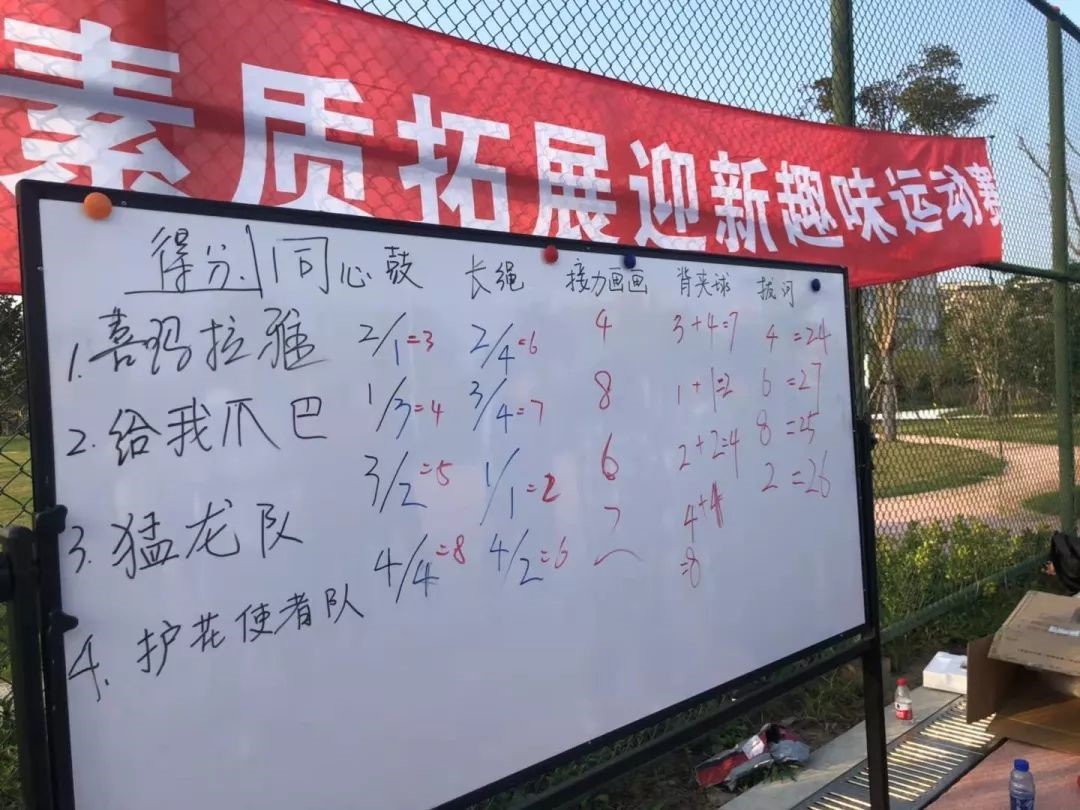 素质拓展迎新趣味运动赛
得分 同心鼓 长绳 接力画画 背夹球 拔河
1.喜玛拉雅 2/1=3 2/4=6 4 3+4=7 4=24
2.给我爪巴 1/3=4 3/4=7 8 1+1=2 6=27
3.猛龙队 3/2=5 1/1=2 6 2+2=4 8=25
4.护花使者队 4/4=8 4/2=6 4+4=8 2=26